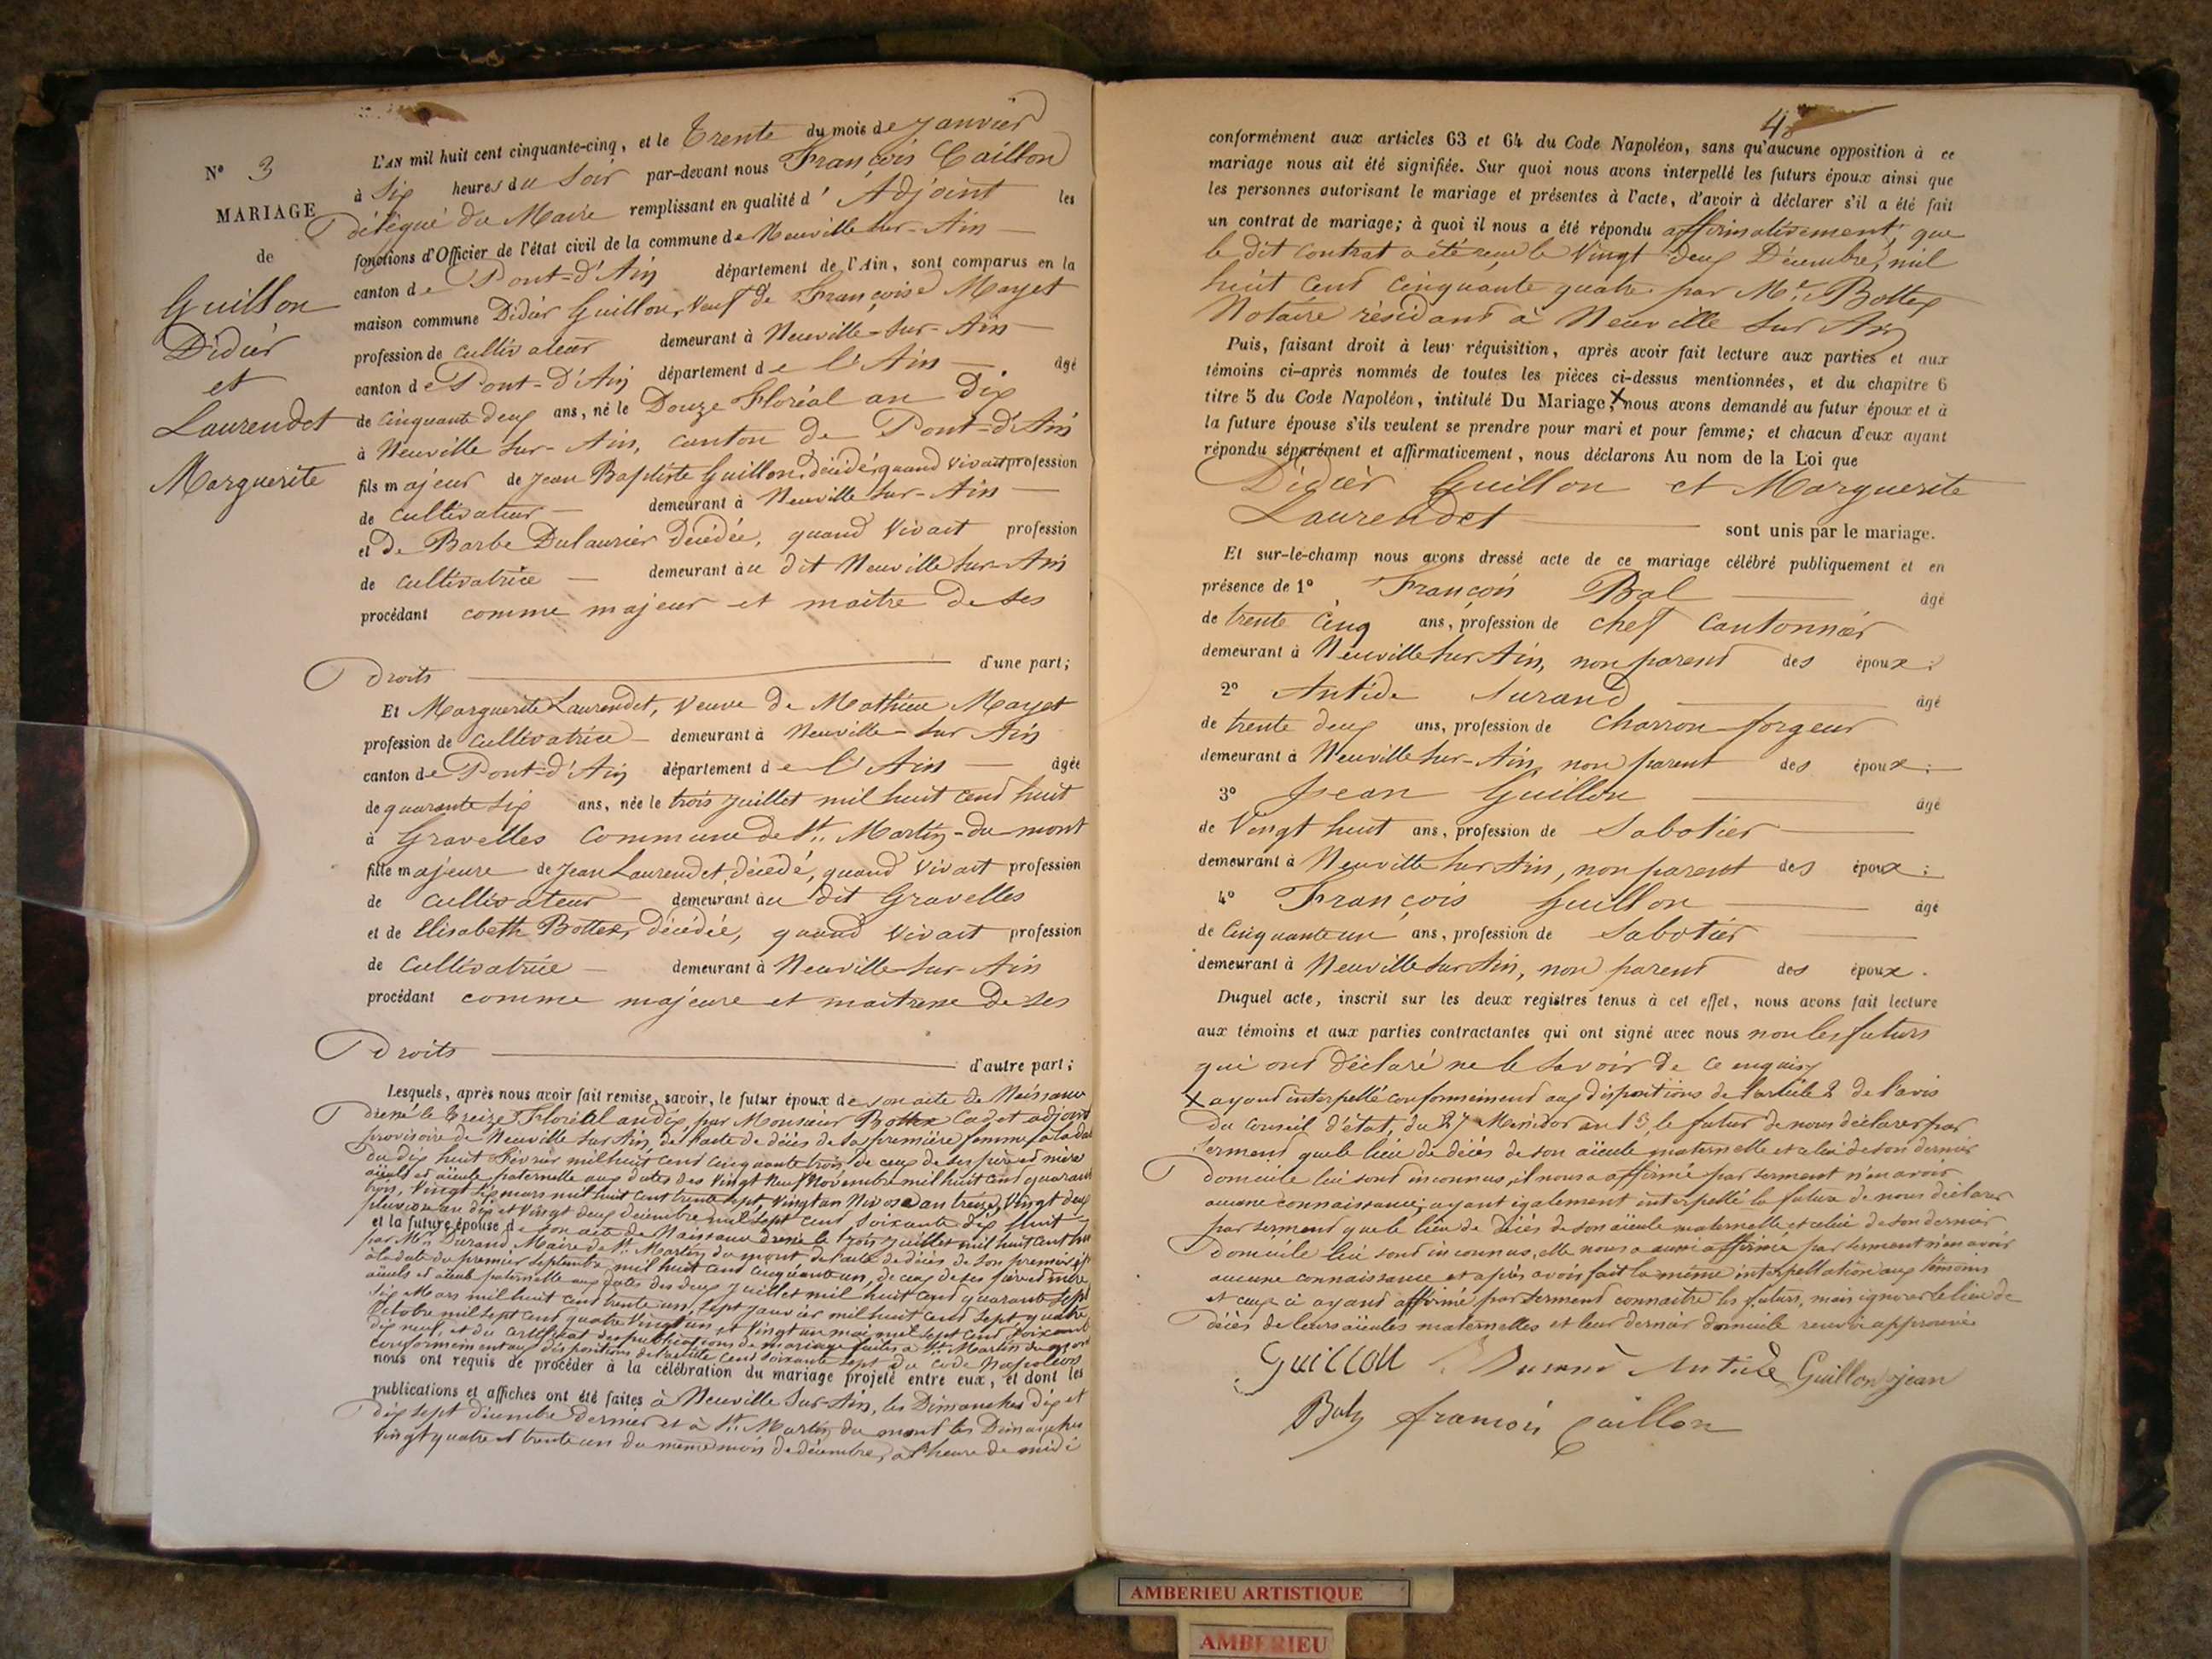 N° 3
MARIAGE
de
Guillon
Didier
et
Laurendet
Marguerite
L'AN mil huit cent cinquante-cinq, et le Trente du mois de Janvier
à Six heures du Soir par-devant nous François Caillon
délégué du Maire remplissant en qualité d'Adjoint les
fonctions d'Officier de l'état civil de la commune de Neuville sur-Ain
canton de Pont-d'Ain département de l'Ain, sont comparus en la
maison commune Didier Guillon, Veuf de Françoise Mayet
profession de cultivateur demeurant à Neuville-sur-Ain
canton de Pont-d'Ain département de l'Ain âgé
de cinquante deux ans, né le Douze Floréal an Dix
à Neuville sur-Ain, canton de Pont-d'Ain
fils majeur de Jean Baptiste Guillon, décédé, quand vivait profession
de cultivateur demeurant à Neuville sur-Ain
et de Barbe Dulaurier décédée, quand vivait profession
de cultivatrice demeurant au dit Neuville sur-Ain
procédant comme majeur et maître de ses
droits d'une part;
Et Marguerite Laurendet, Veuve de Mathieu Mayet
profession de cultivatrice demeurant à Neuville-sur Ain
canton de Pont-d'Ain département de l'Ain âgée
de quarante six ans, née le trois Juillet mil huit cent huit
à Gravelles commune de St. Martin-du-mont
fille majeure de Jean Laurendet décédé, quand vivait profession
de cultivateur demeurant au dit Gravelles
et de Elisabeth Bottex, décédée, quand vivait profession
de cultivatrice demeurant à Neuville-sur-Ain
procédant comme majeure et maitresse de ses
droits d'autre part;
Lesquels, après nous avoir fait remise, savoir, le futur époux de son acte de Naissance
dressé le treize Floréal an dix, par Monsieur Bottex Cadet adjoint
provisoire de Neuville sur Ain, de l'acte de décès de sa première femme à la date
du dix huit Février mil huit cent cinquante trois, de ceux de ses père et mère
aïeuls et aïeule paternelle aux dates des vingt neuf Novembre mil huit cent quarante
trois, vingt six mars mil huit cent trente sept, vingt un Nivose an treize, vingt deux
pluviose an dix et vingt deux décembre mil sept cent soixante dix huit
et la future épouse de son acte de Naissance dressé le trois juillet mil huit cent huit
par Mr. Durand Maire de St. Martin du mont de l'acte de décès de son premier
à la date du premier septembre mil huit cent cinquante un, de ceux de ses père et mère
aïeuls et aïeule paternelle aux dates des deux Juillet mil huit cent quarante sept
six Mars mil huit cent trente un, sept janvier mil huit cent sept, quatre
Octobre mil sept cent quatre vingt un et vingt un mai mil sept cent soixante
dix neuf, et du certificat des publications de mariage faites à St. Martin du mont
conformément aux dispositions de l'article cent soixante sept du code Napoléon
nous ont requis de procéder à la célébration du mariage projeté entre eux, et dont les
publications et affiches ont été faites à Neuville Sur-Ain, les Dimanches dix et
dix sept décembre dernier et à St. Martin du mont les Dimanches
vingt quatre et trente un du même mois de décembre, à l'heure de midi
4
conformément aux articles 63 et 64 du Code Napoléon, sans qu'aucune opposition à ce
mariage nous ait été signifiée. Sur quoi nous avons interpellé les futurs époux ainsi que
les personnes autorisant le mariage et présentes à l'acte, d'avoir à déclarer s'il a été fait
un contrat de mariage; à quoi il nous a été répondu affirmativement, que
le dit contrat a été reçu le Vingt deux Décembre, mil
huit cent cinquante quatre par Me. Bottex
Notaire résidant à Neuville sur Ain
Puis, faisant droit à leur réquisition, après avoir fait lecture aux parties et aux
témoins ci-après nommés de toutes les pièces ci-dessus mentionnées, et du chapitre 6
titre 5 du Code Napoléon, intitulé Du Mariage, x nous avons demandé au futur époux et à
la future épouse s'ils veulent se prendre pour mari et pour femme; et chacun d'eux ayant
répondu séparément et affirmativement, nous déclarons Au nom de la Loi que
Didier Guillon et Marguerite
Laurendet sont unis par le mariage.
Et sur-le-champ nous avons dressé acte de ce mariage célébré publiquement et en
présence de 1° François Bal âgé
de trente cinq ans, profession de chef cantonnier
demeurant à Neuville sur Ain, non parent des époux;
2° Antide Durand âgé
de trente deux ans, profession de charron-forgeur
demeurant à Neuville sur-Ain, non parent des époux;
3° Jean Guillon âgé
de Vingt huit ans, profession de Sabotier
demeurant à Neuville sur Ain, non parent des époux;
4° François Guillon âgé
de Cinquante un ans, profession de Sabotier
demeurant à Neuville sur Ain, non parent des époux.
Duquel acte, inscrit sur les deux registres tenus à cet effet, nous avons fait lecture
aux témoins et aux parties contractantes qui ont signé avec nous non les futurs
qui ont déclaré ne le savoir de ce enquis
x ayant interpellé conformément aux dispositions de l'article 2 de l'avis
du Conseil d'état, du 27 Messidor an 13, le futur de nous déclarer par
serment que le lieu de décès de son aïeule maternelle et celui de son dernier
domicile lui sont inconnus, il nous a affirmé par serment n'en avoir
aucune connaissance; ayant également interpellé la future de nous déclarer
par serment que le lieu de décès de son aïeule maternelle et celui de son dernier
domicile lui sont inconnus, elle nous a aussi affirmé par serment n'en avoir
aucune connaissance et après avoir fait la même interpellation aux témoins
et ceux ci ayant affirmé par serment connaitre les futurs, mais ignorer le lieu de
décès de leurs aïeules maternelles et leur dernier domicile renvoi approuvé
Guillon Durand Antide Guillon jean
Bal françois Caillon
AMBERIEU ARTISTIQUE
AMBERIEU